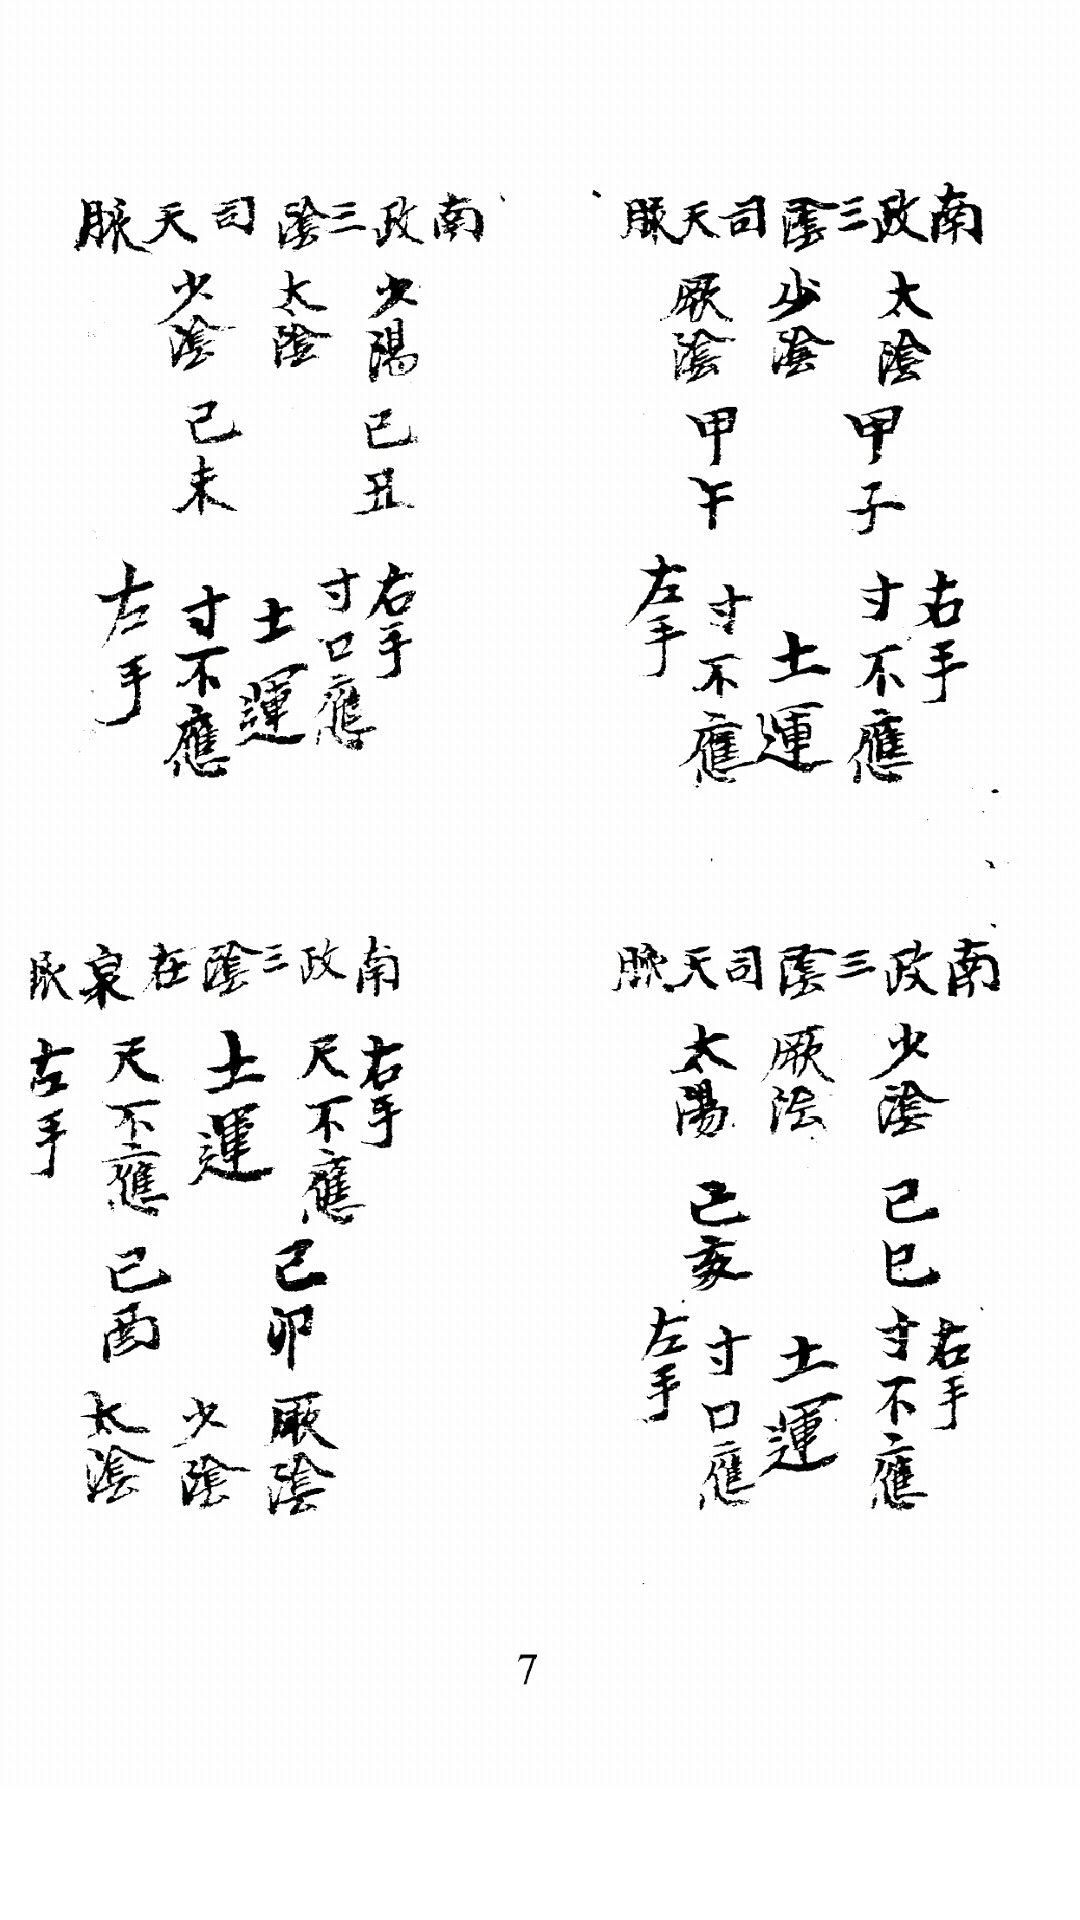 南政三陰司天脉
太陰
少陰
厥陰
甲子
甲午
右手
寸不應
土運
寸不應
左手
南政三陰司天脉
少陽
太陰
少陰
己丑
己未
右手
寸口應
土運
寸不應
左手
南政三陰司天脉
少陰
厥陰
太陽
己巳
己亥
右手
寸不應
土運
寸口應
左手
南政三陰在泉脉
右手
尺不應
土運
尺不應
左手
己卯
己酉
厥陰
少陰
太陰
7